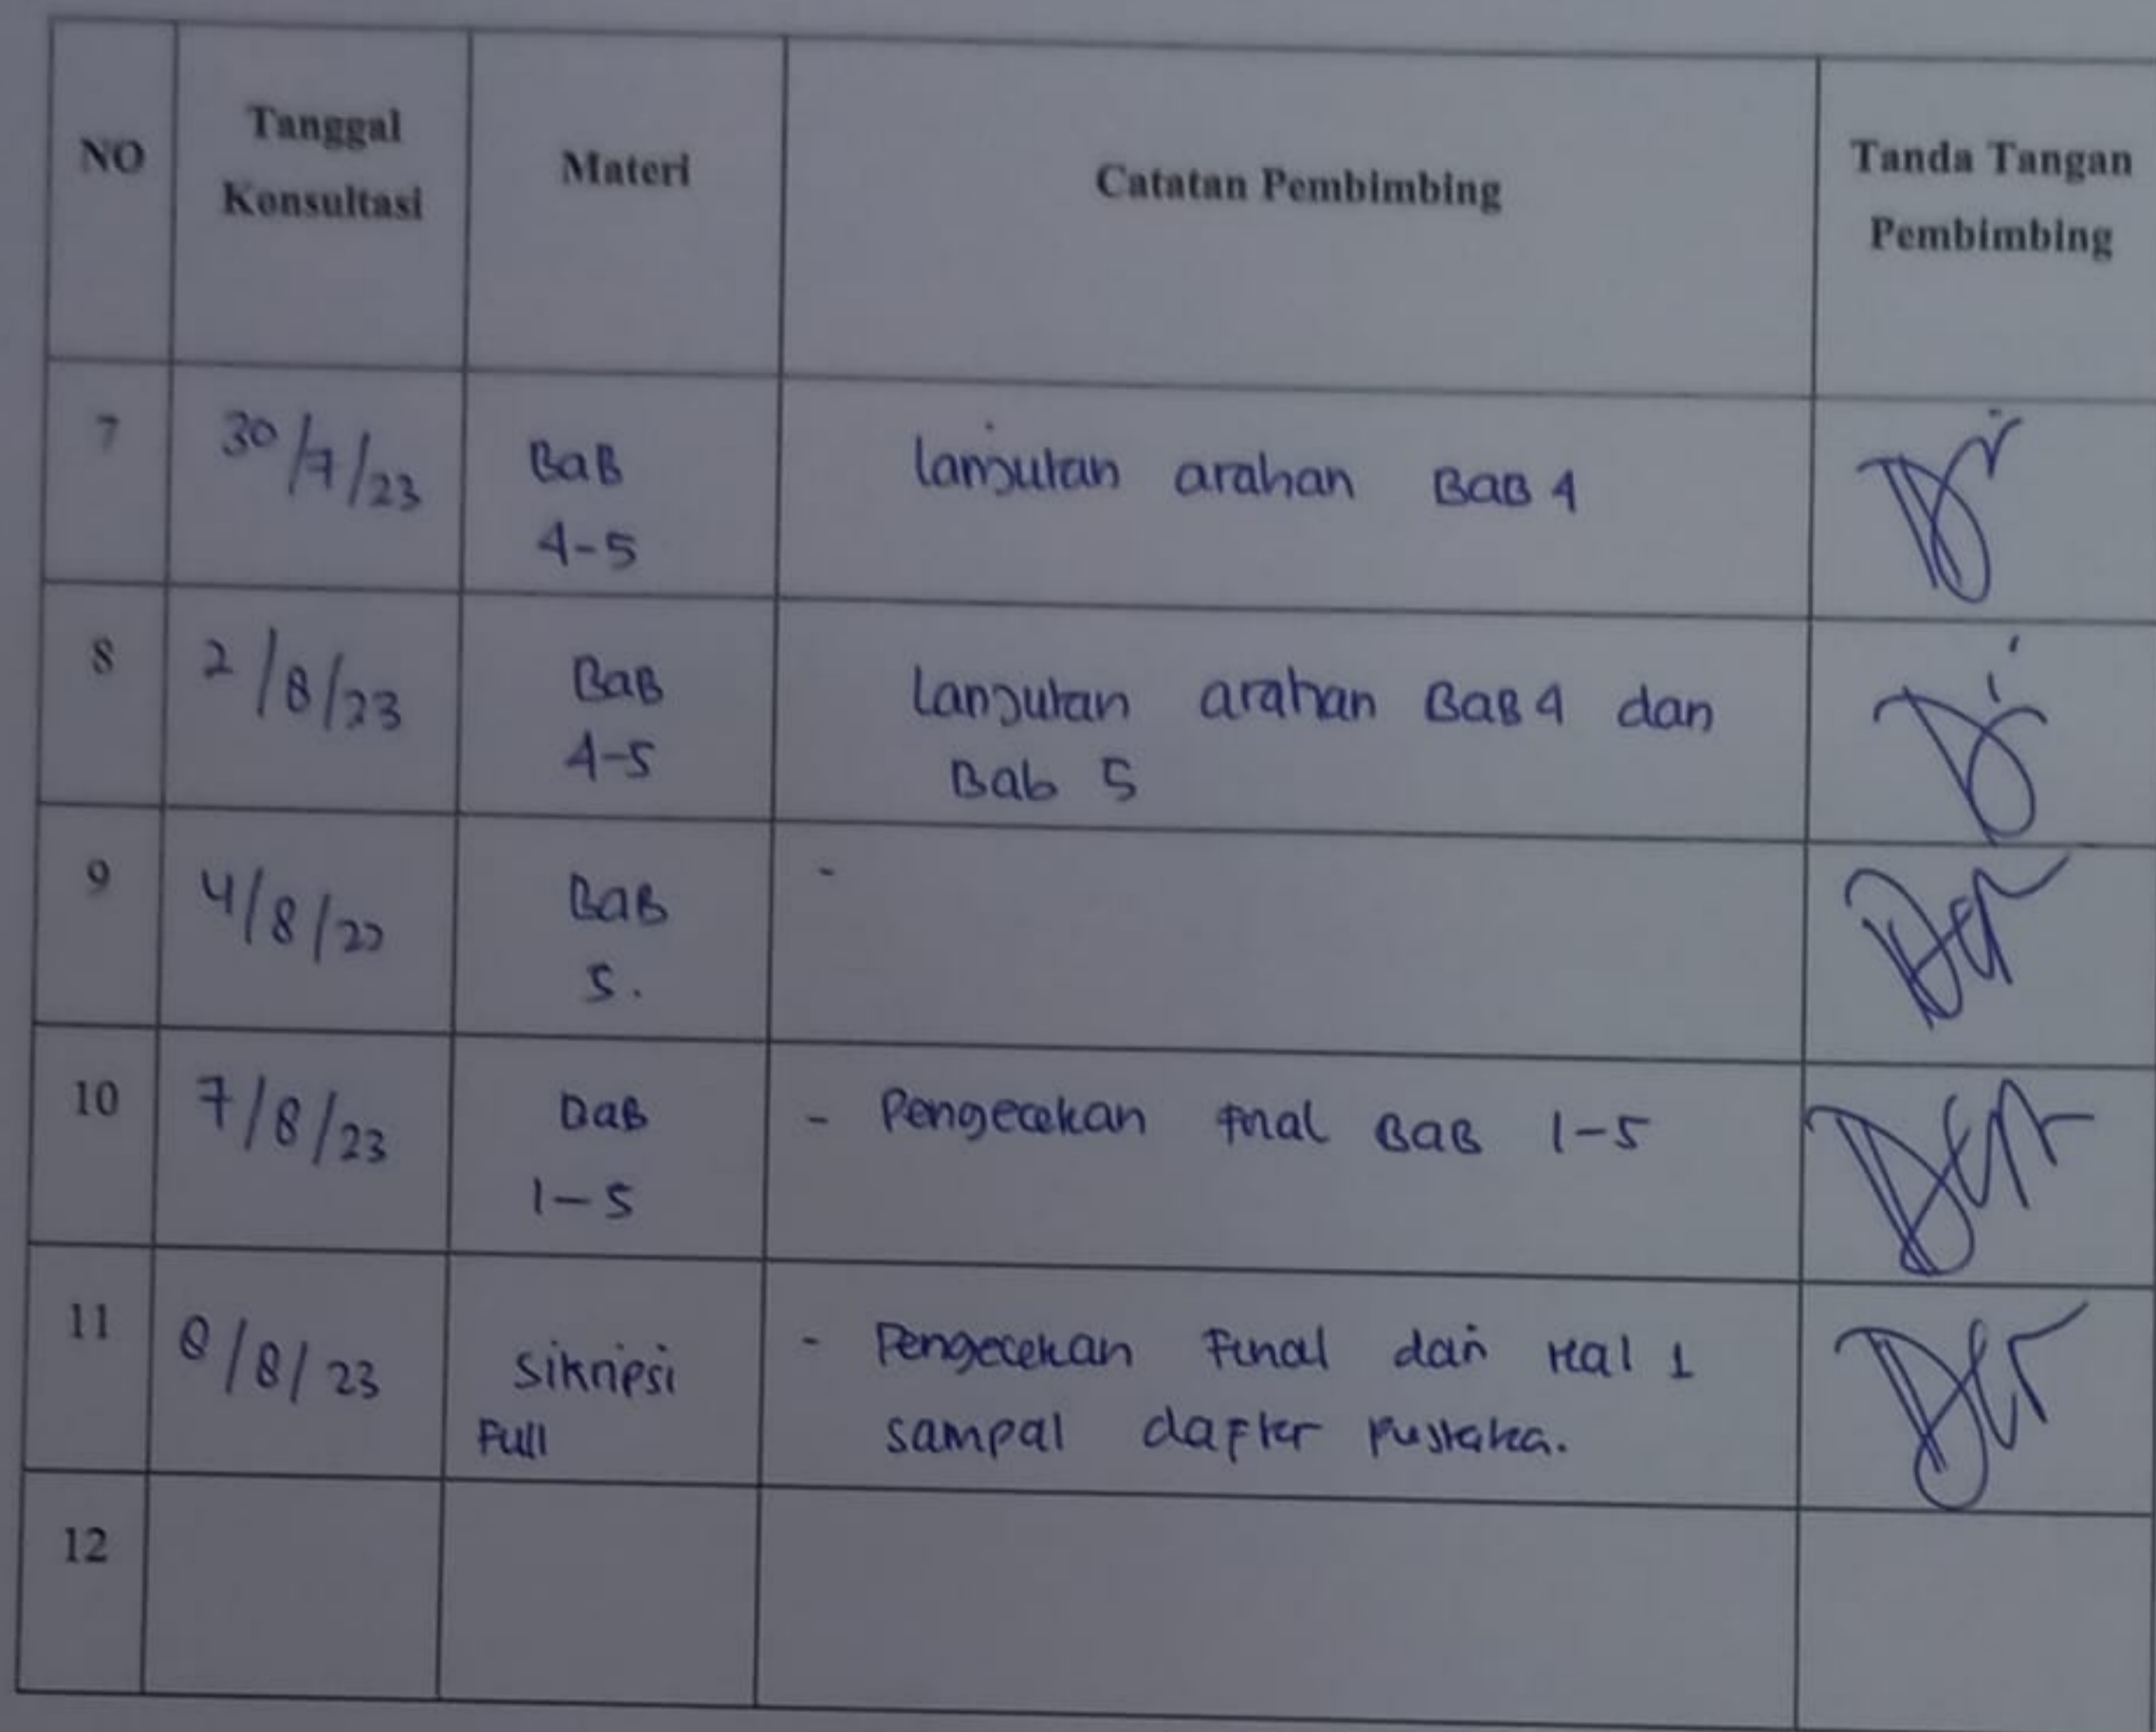 NO
Tanggal Konsultasi
Materi
Catatan Pembimbing
Tanda Tangan Pembimbing
7
30/7/23
BaB
4-5
lanjutan arahan BaB 4
8
2/8/23
BaB
4-5
Lanjutan arahan BaB 4 dan
Bab 5
9
4/8/23
BaB
5.
-
10
7/8/23
BaB
1-5
- Pengecekan final BaB 1-5
11
8/8/23
Sikripsi
Full
- Pengecekan Final dari Hal 1
sampai daftar pustaka.
12